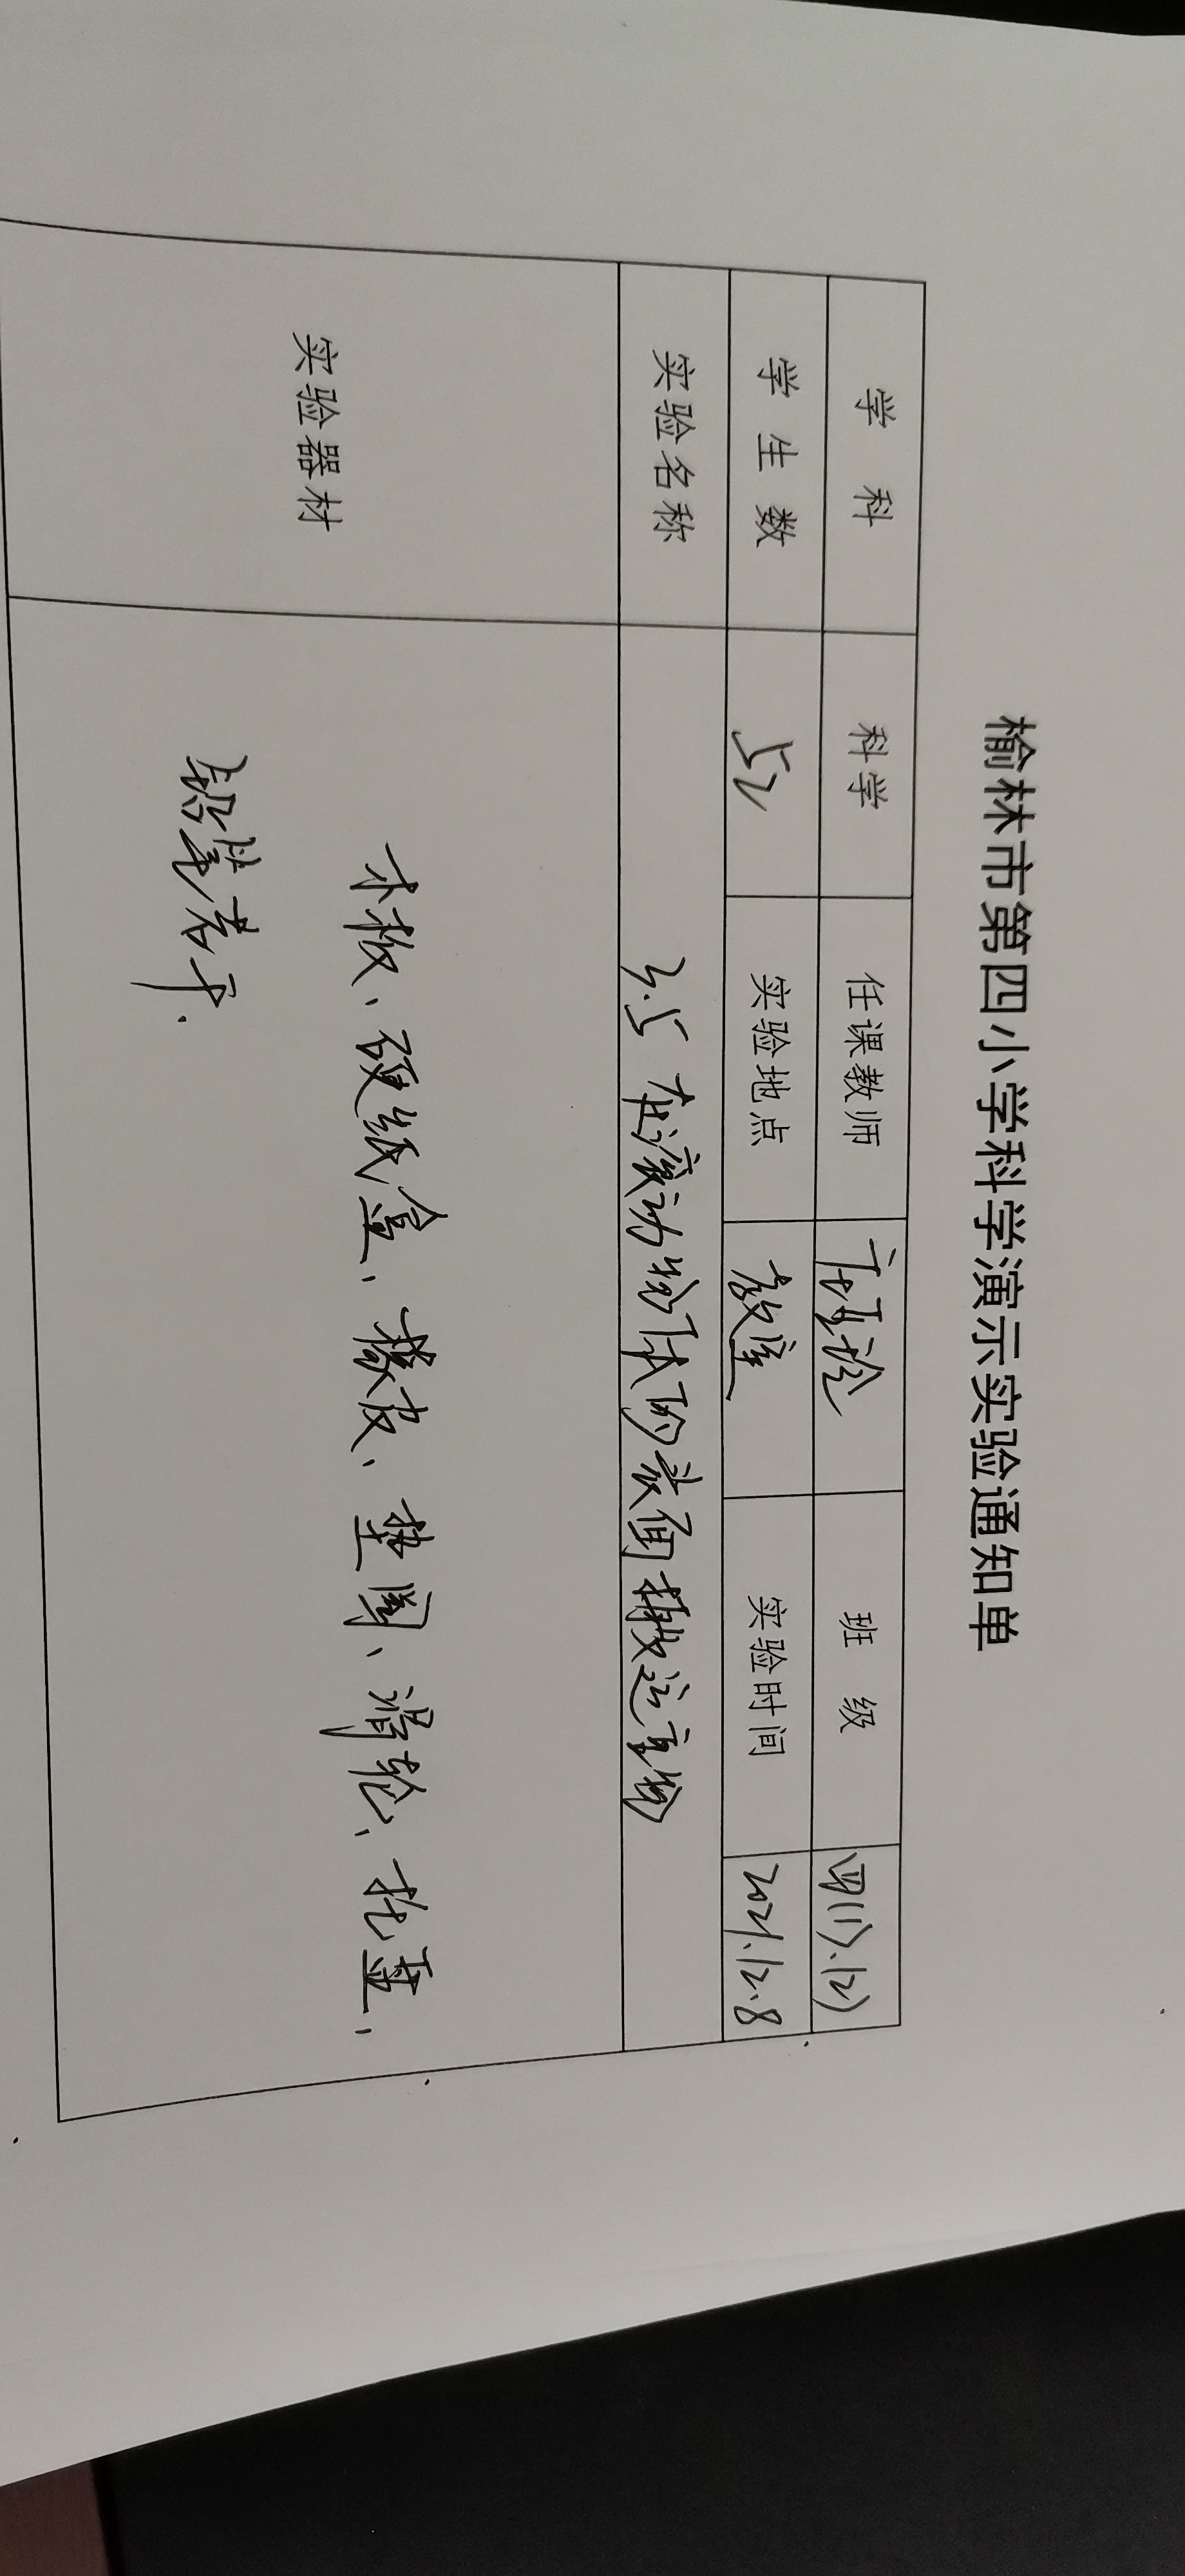 榆林市第四小学科学演示实验通知单
学 科 科学 任课教师 班 级 四(1).(2)
学 生 数 52 实验地点 教室 实验时间 2021.12.8
实验名称 3.5 在滚动物体的表面搬运重物
实验器材
木板、硬纸盒、橡皮、垫圈、滑轮、托盘、
铅笔若干.